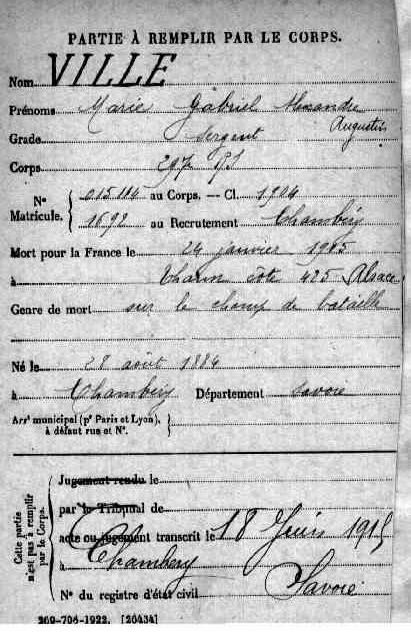 PARTIE À REMPLIR PAR LE CORPS.
Nom VILLE
Prénoms Marie Gabriel Alexandre
Augustin
Grade sergent
Corps 297 RI
Nº Matricule. 015114 au Corps. — Cl. 1904
1692 au Recrutement Chambéry
Mort pour la France le 24 janvier 1915
à Thann côte 425 Alsace
Genre de mort sur le champ de bataille
Né le 28 août 1884
à Chambéry Département Savoie
Arrᵗ municipal (pʳ Paris et Lyon),
à défaut rue et Nº.
Cette partie n'est pas à remplir par le Corps.
Jugement rendu le
par le Tribunal de
acte ou jugement transcrit le 18 Juin 1915
à Chambery
Savoie
Nº du registre d'état civil
269-708-1922. [26434]